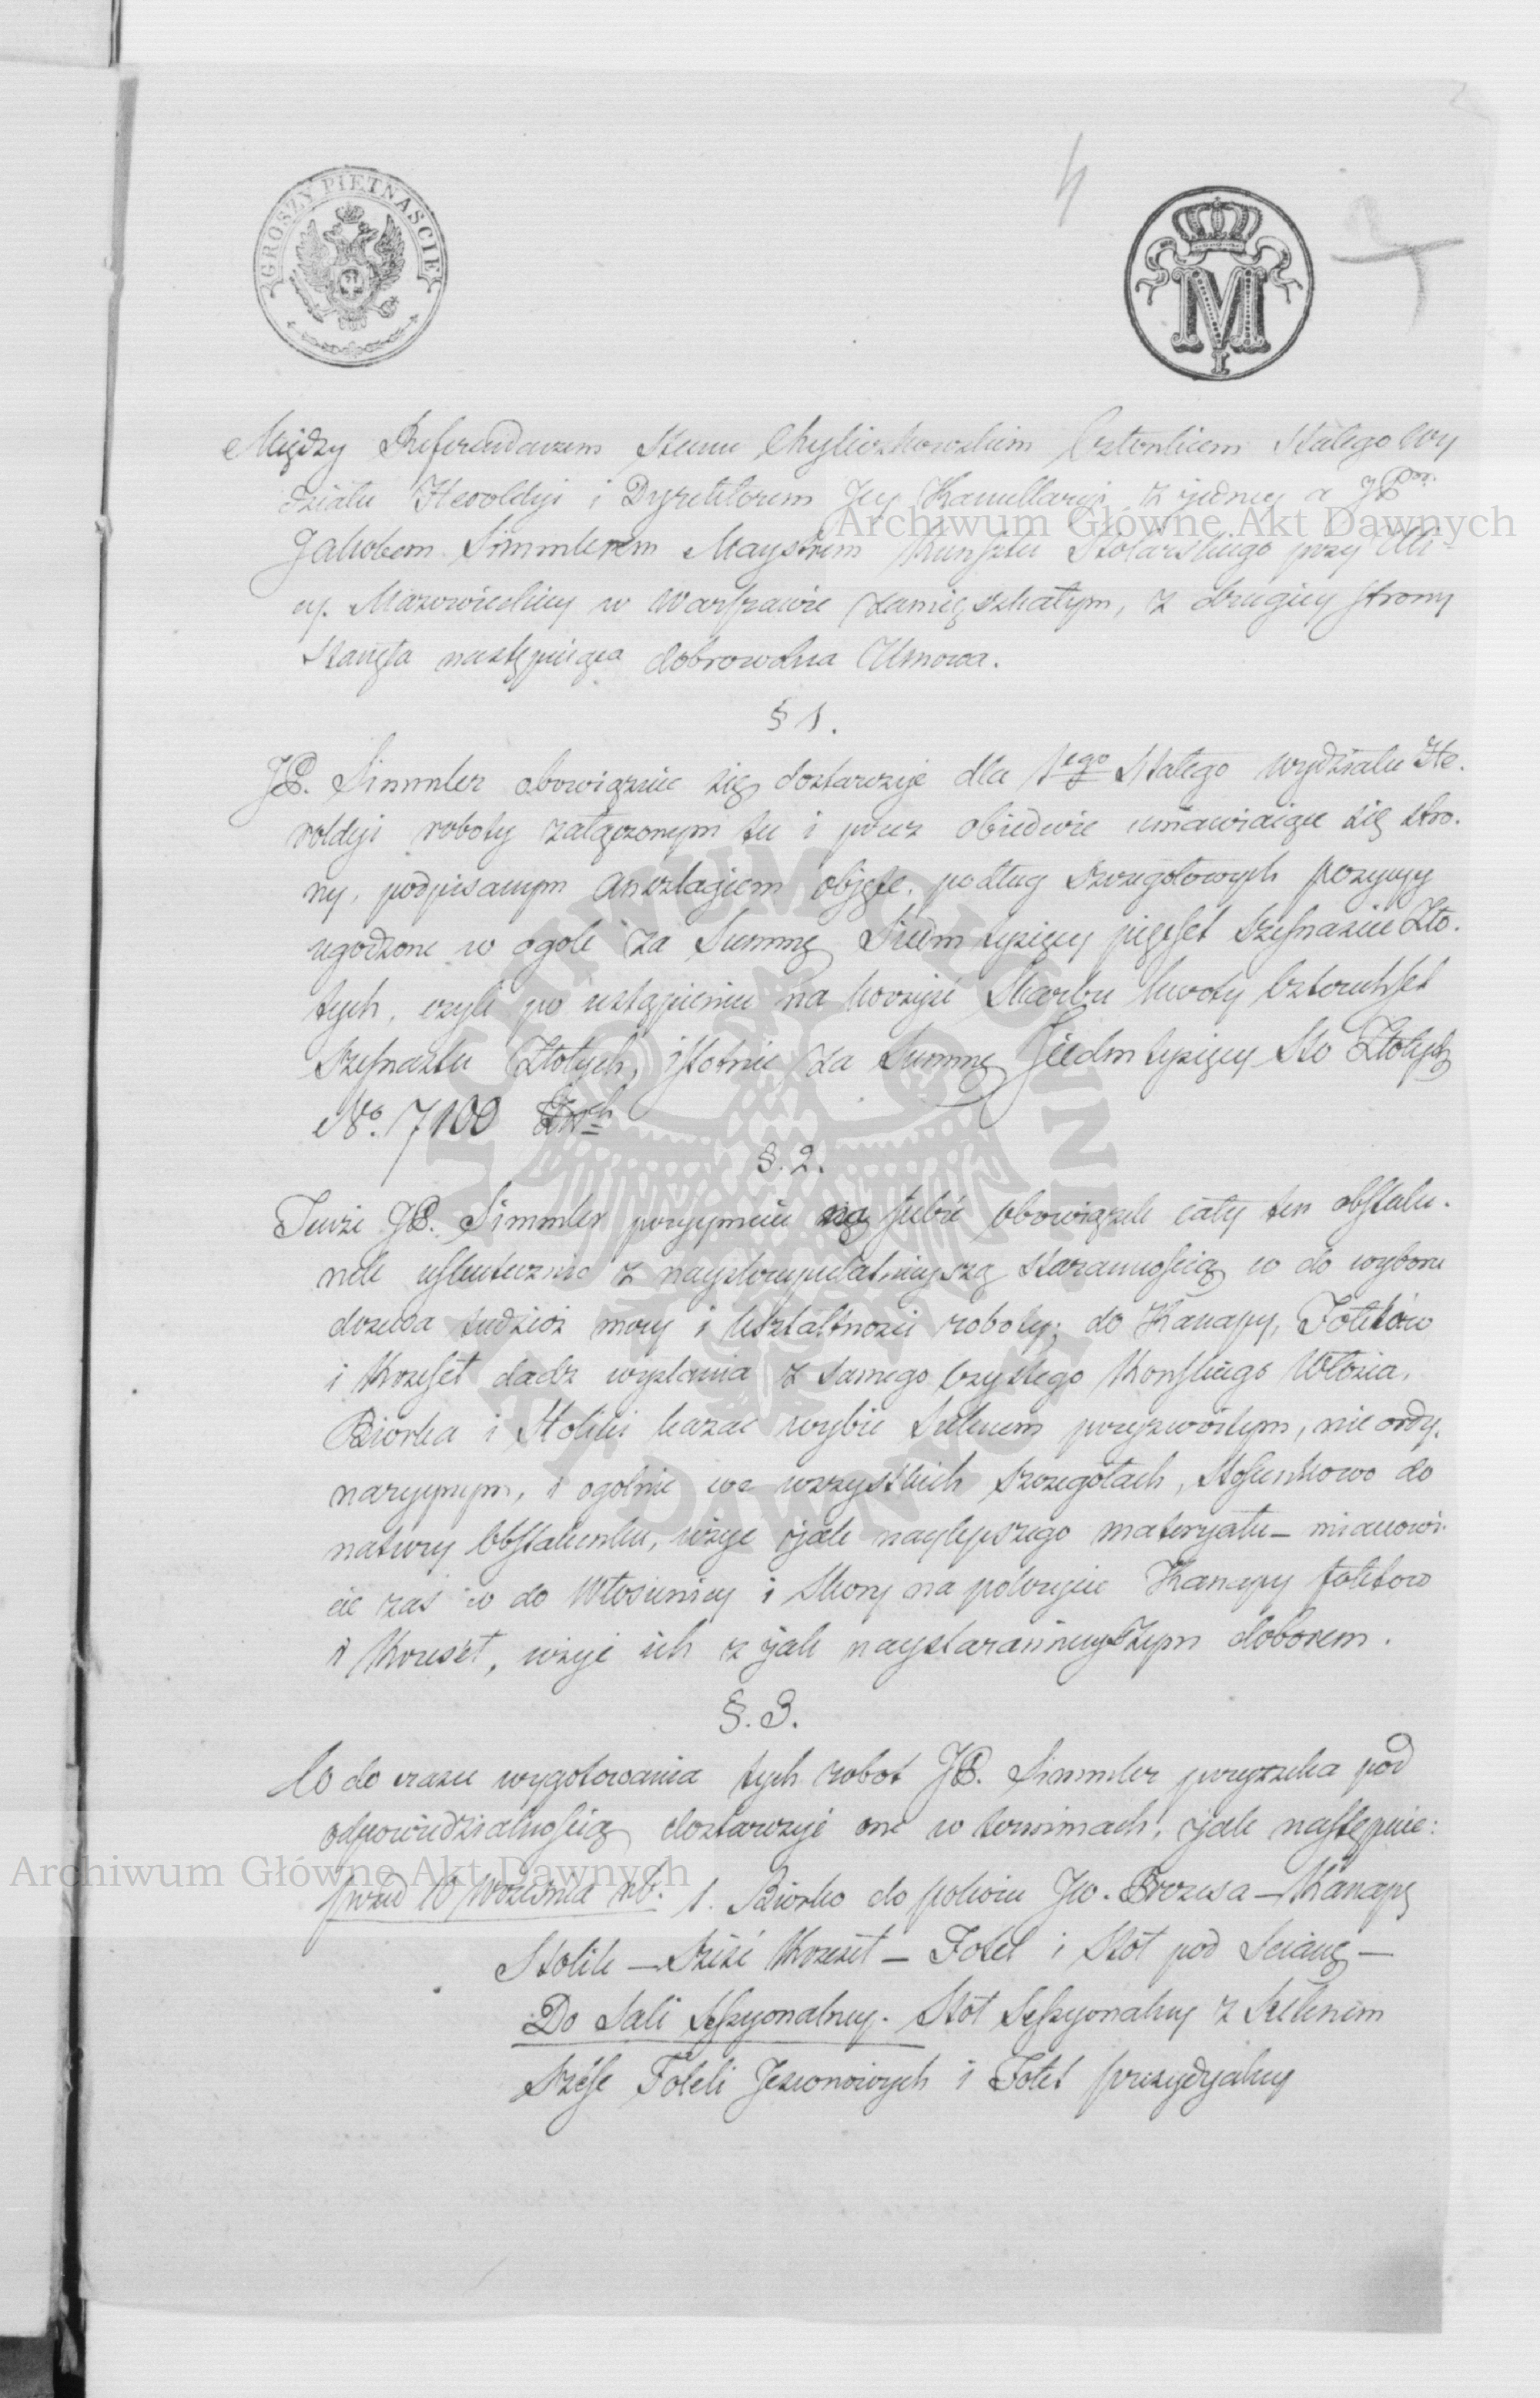 4
GROSZY PIĘTNAŚCIE
M
I
Między Referendarzem Stanu Chyliczkowskim Członkiem Stałego Wy
działu Heroldyi i Dyrektorem Jey Kancellaryi z jedney a JP
Jakobem Simmlerem Maystrem Kunsztu Stolarskiego przy Uli-
cy. Mazowieckiey w Warszawie zamięszkałym, z drugiey strony
Stanęła następuiąca dobrowolna Umowa.
§ 1.
JP. Simmler obowiązuie się dostarczyć dla tego Stałego Wydziału He.
roldyi roboty załączonym tu i przez obiedwie umawiaiące się stro.
ny, podpisanym Anszlagiem objęte, podług szczegołowych pozycyy
ugodzone w ogole za Summę Siedm tysięcy pięćset szesnaście Zło.
tych, czyli po ustąpieniu na korzyść Skarbu kwoty Czterechset
szesnastu Złotych, istotnie za Summę Siedm tysięcy Sto Złotych
No. 7100
§. 2.
Tenże JP. Simmler przyymuie na siebie obowiązek cały ten obstalu.
nek uskutecznić z nayskrupulatnieyszą starannością co do wyboru
drzewa tudzież mocy i kształtności roboty; do Kanapy, Fotelów
i Krzeseł dadz wysłania z samego czystego Końskiego Włosia,
Biorka i Stoliki kazać wybić Suknem przyzwoitym, nie ordy.
naryynym, i ogolnie we wszystkich szczegołach, Stosunkowo do
natury Obstalunku, użyć jak naylepszego materyału – mianowi.
cie zaś co do Włosienicy i Skory na pokrycie Kanapy fotelow
i Krzeseł, użyć ich z jak naystarannieyszym doborem.
§. 3.
Co do czasu wygotowania tych robot JP. Simmler przyrzeka pod
odpowiedzialnością dostarczyć one w terminach, jak następuie:
przed 10 Września rb. 1. Biorko do pokoiu Jw. Prezesa – Kanapę
Stolik – Sześć Krzeseł – Fotel i Stół pod Scianę –
Do Sali Sessyonalney. Stół Sessyonalny z Suknem
Sześć Foteli Jesionowych i Fotel prezydyalny
Archiwum Główne Akt Dawnych
Archiwum Główne Akt Dawnych
ARCHIWUM GŁÓWNE AKT DAWNYCH